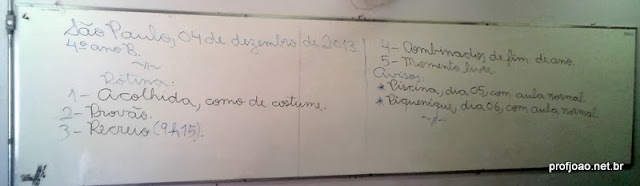 São Paulo, 04 de dezembro de 2013
4º ano B.
Rotina:
1- Acolhida, como de costume.
2- Provão.
3- Recreio (9h15).
4- Combinados de fim de ano.
5- Momento livre
Avisos:
* Piscina, dia 05, com aula normal.
* Piquenique, dia 06, com aula normal.
profjoao.net.br